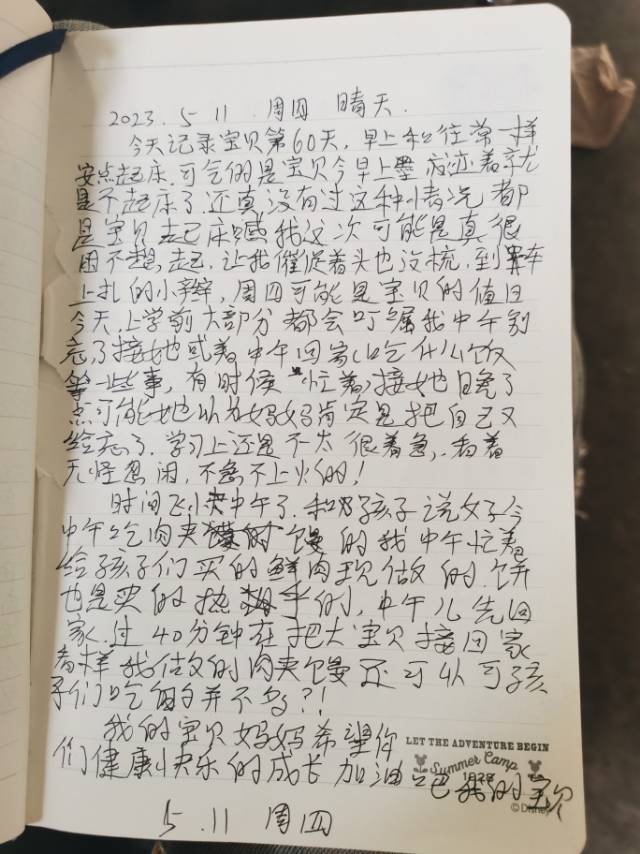 2023.5.11 周四 晴天.
今天记录宝贝第60天,早上和往常一样
安点起床.可气的是宝贝今早上 着就
是不起床了.还真没有过这种情况 都
是宝贝起床喊我这次可能是真很
困不想起.让我催促着头也没梳,到 车
上扎的小辫,周四可能是宝贝的值日
今天.上学前大部分都会叮嘱我中午别
忘了接她或着中午回家吃什么饭
等一些事,有时候 忙着接她晚了
点可能她以为妈妈肯定是把自己又
给忘了.学习上还是不太很着急,.看着
无怪忽闲,不急不上火的!
时间飞快中午了.和好孩子说好今
中午吃肉夹馍 的我中午忙着
给孩子们买的鲜肉现做的.饼
也是买的热乎的,中午儿先回
家.过40分钟在把大宝贝接回家
看样我做的肉夹馍还可以可孩
子们吃的并不多?!
我的宝贝妈妈希望你
们健康快乐的成长加油吧我的宝贝
LET THE ADVENTURE BEGIN
Summer Camp
1928
©Disney
5.11 周四